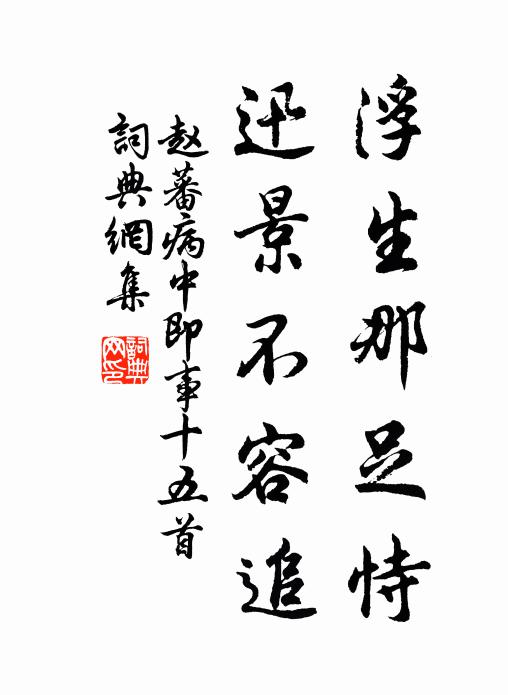 浮生那足恃
迅景不容追
赵蕃病中即事十五首
詞典網集
詞典网印